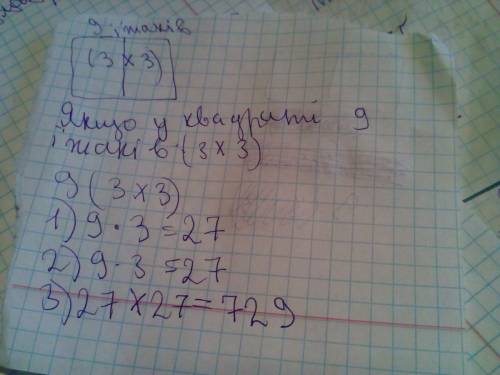 9 їжаків
(3 х 3)
Якщо у квадраті 9
їжаків (3 х 3)
9 (3 х 3)
1) 9 · 3 = 27
2) 9 · 3 = 27
3) 27 х 27 = 729